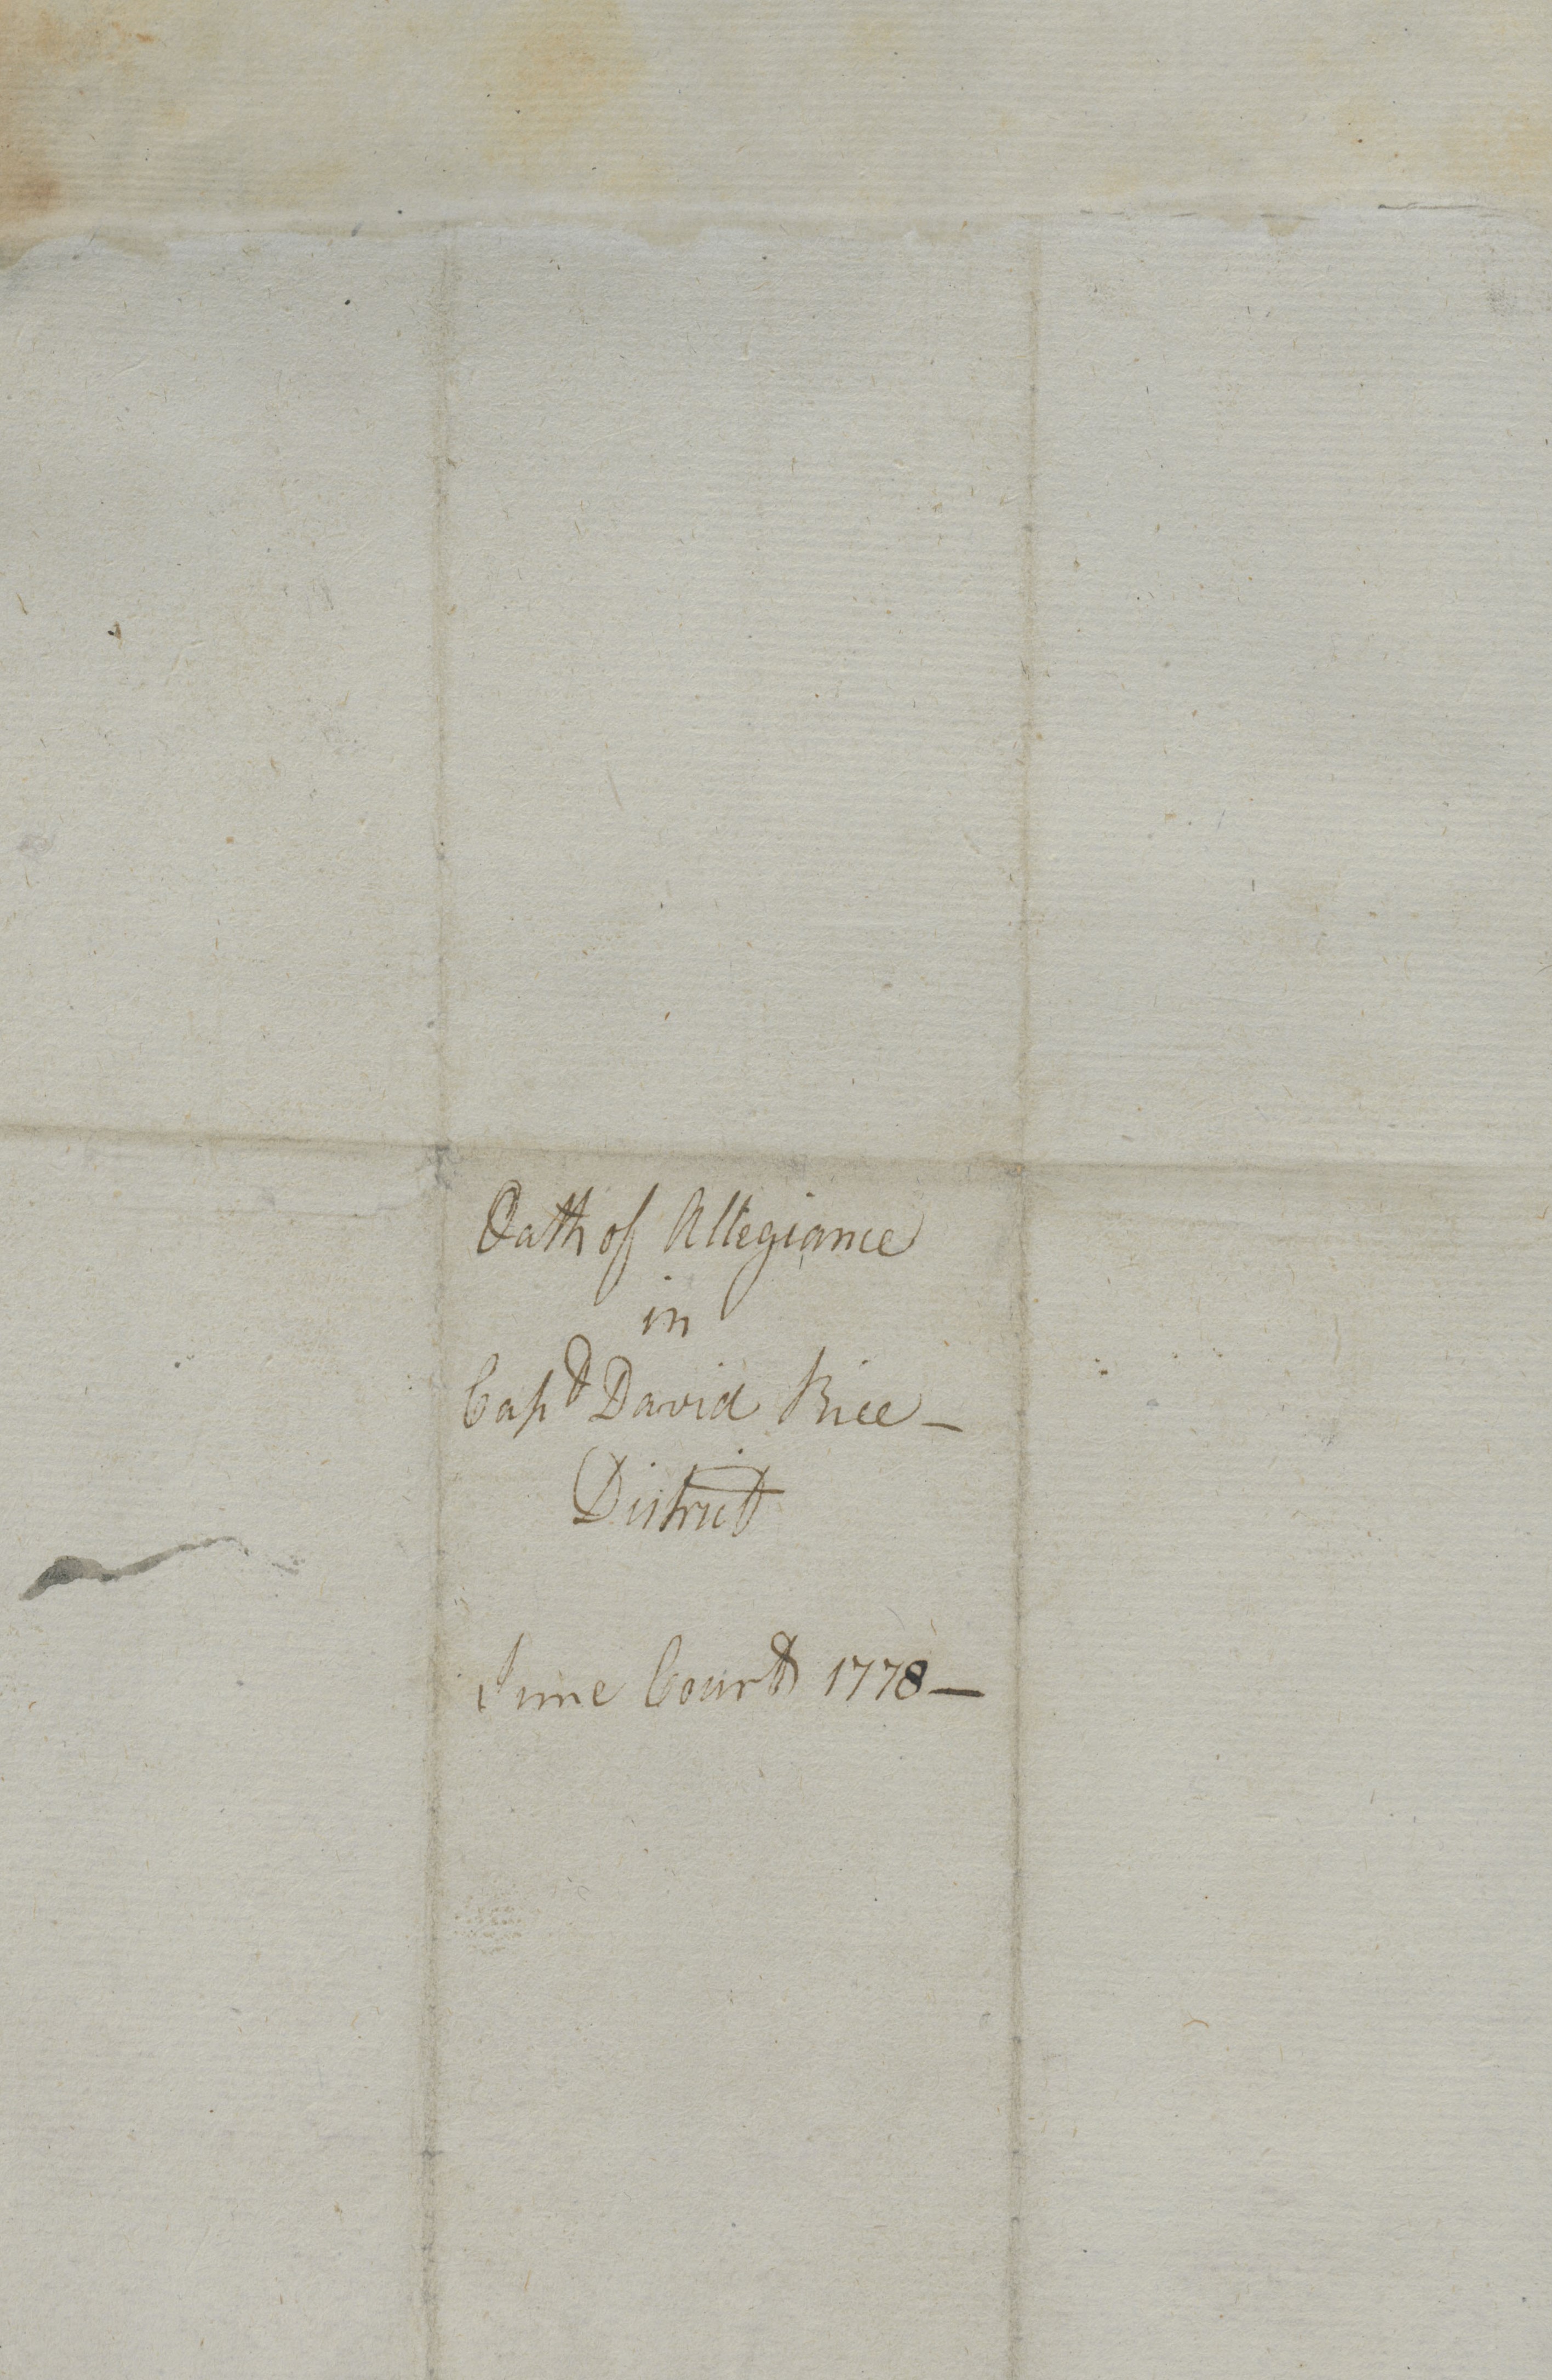 Oath of Allegiance
in
Capt David Rice —
District
June Court 1778 —